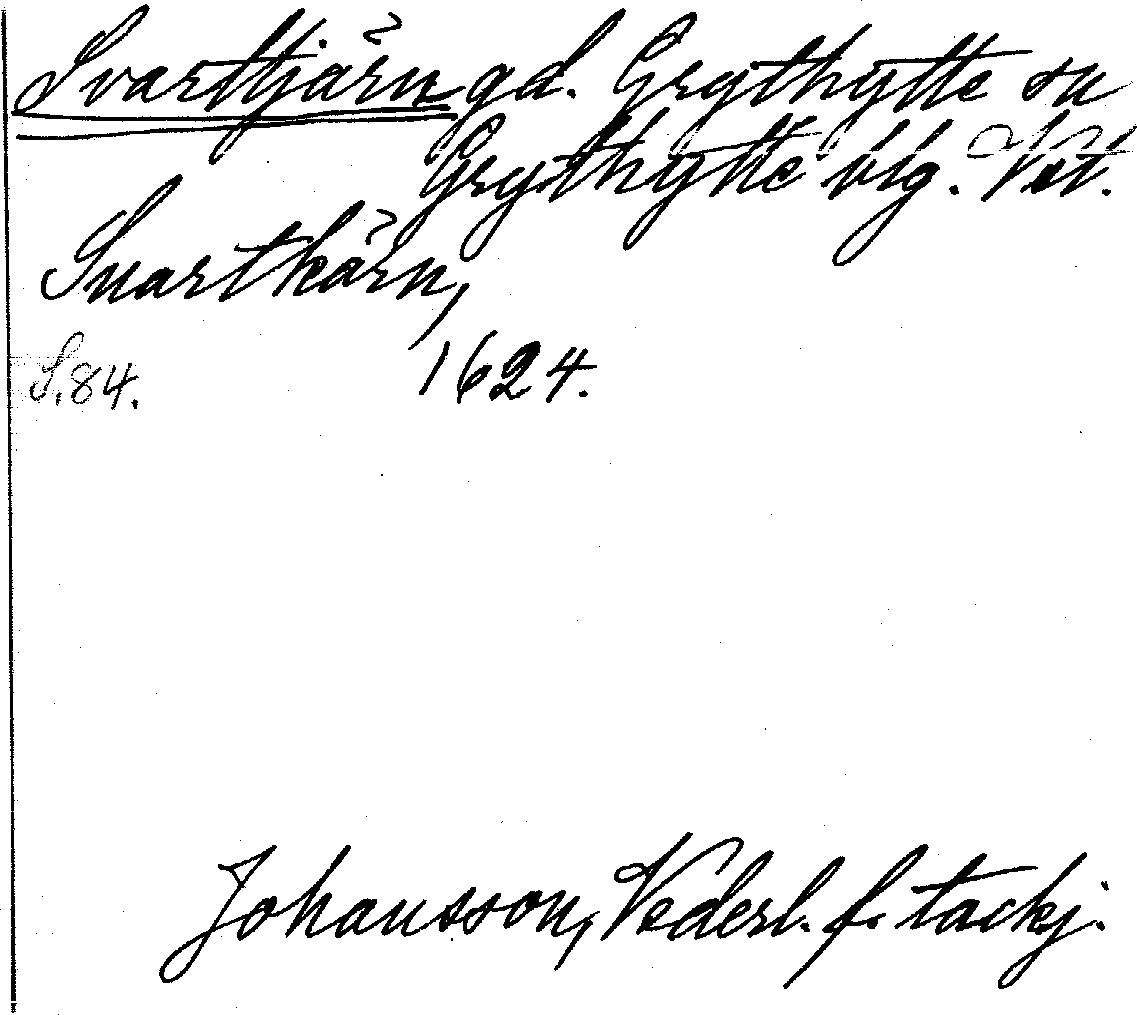 Svarttjärn gd. Grythytte sn
Grythytte blg. Vstl.
Suartkärn,
S. 84. 1624.
Johansson, Vederl. f. tackj.